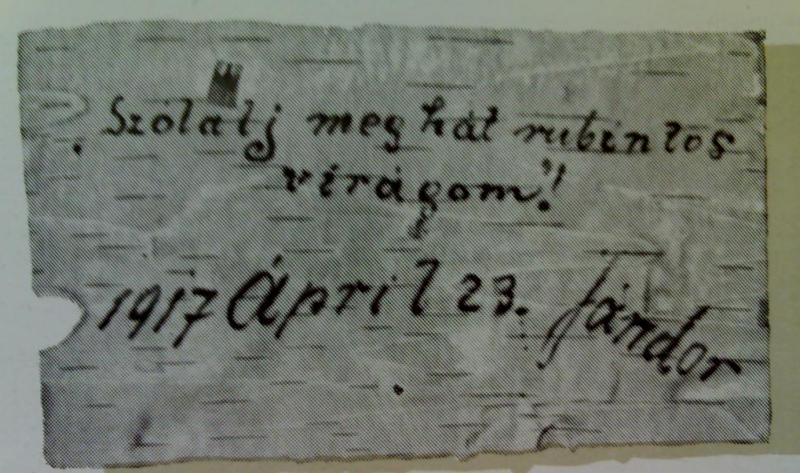 Szólalj meg hát rubintos
virágom!
1917 Ápril 23. Sándor